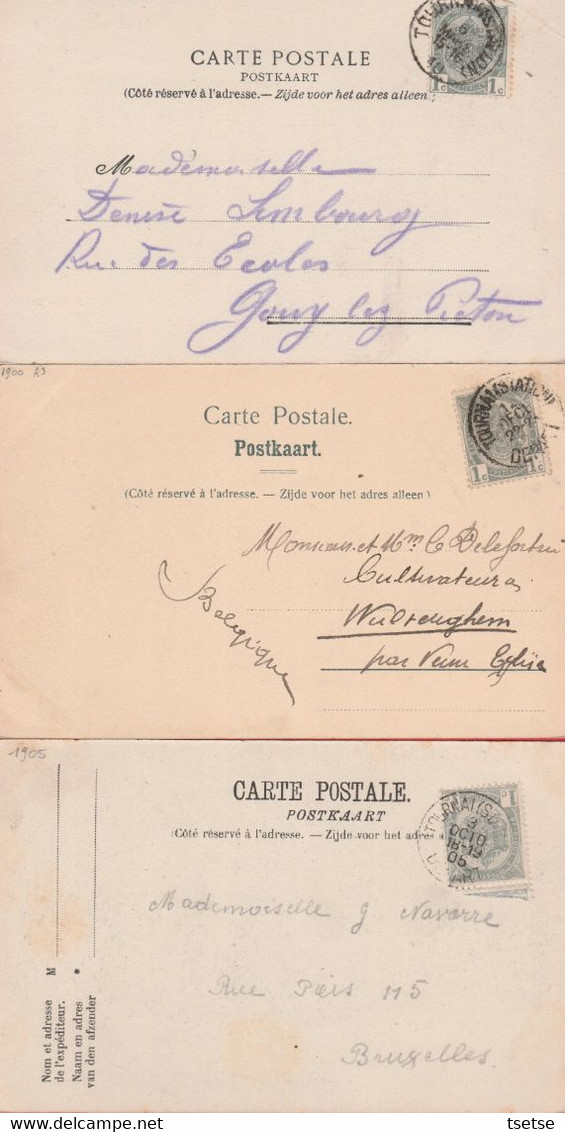 TOURNAI (STATION)
CARTE POSTALE
POSTKAART
(Côté réservé à l'adresse.— Zijde voor het adres alleen
1c 1c
Mademoiselle
Denise Limbourg
Rue des Ecoles
Gouy lez Piéton
1900
TOURNAI (STATION)
Carte Postale.
Postkaart.
1c 1c
(Côté réservé à l'adresse. — Zijde voor het adres alleen)
Monsieur et Mme C
Cultivateurs
Wulveughem
par
Belgique
1905
CARTE POSTALE.
POSTKAART
(Côté réservé à l'adresse. — Zijde voor het adres
TOURNAI
3
OCTO
18-19
05
Mademoiselle G. Navarre
Rue 115
Bruxelles
M
Nom et adresse
de l'expéditeur.
Naam en adres
van den afzender
tsetse